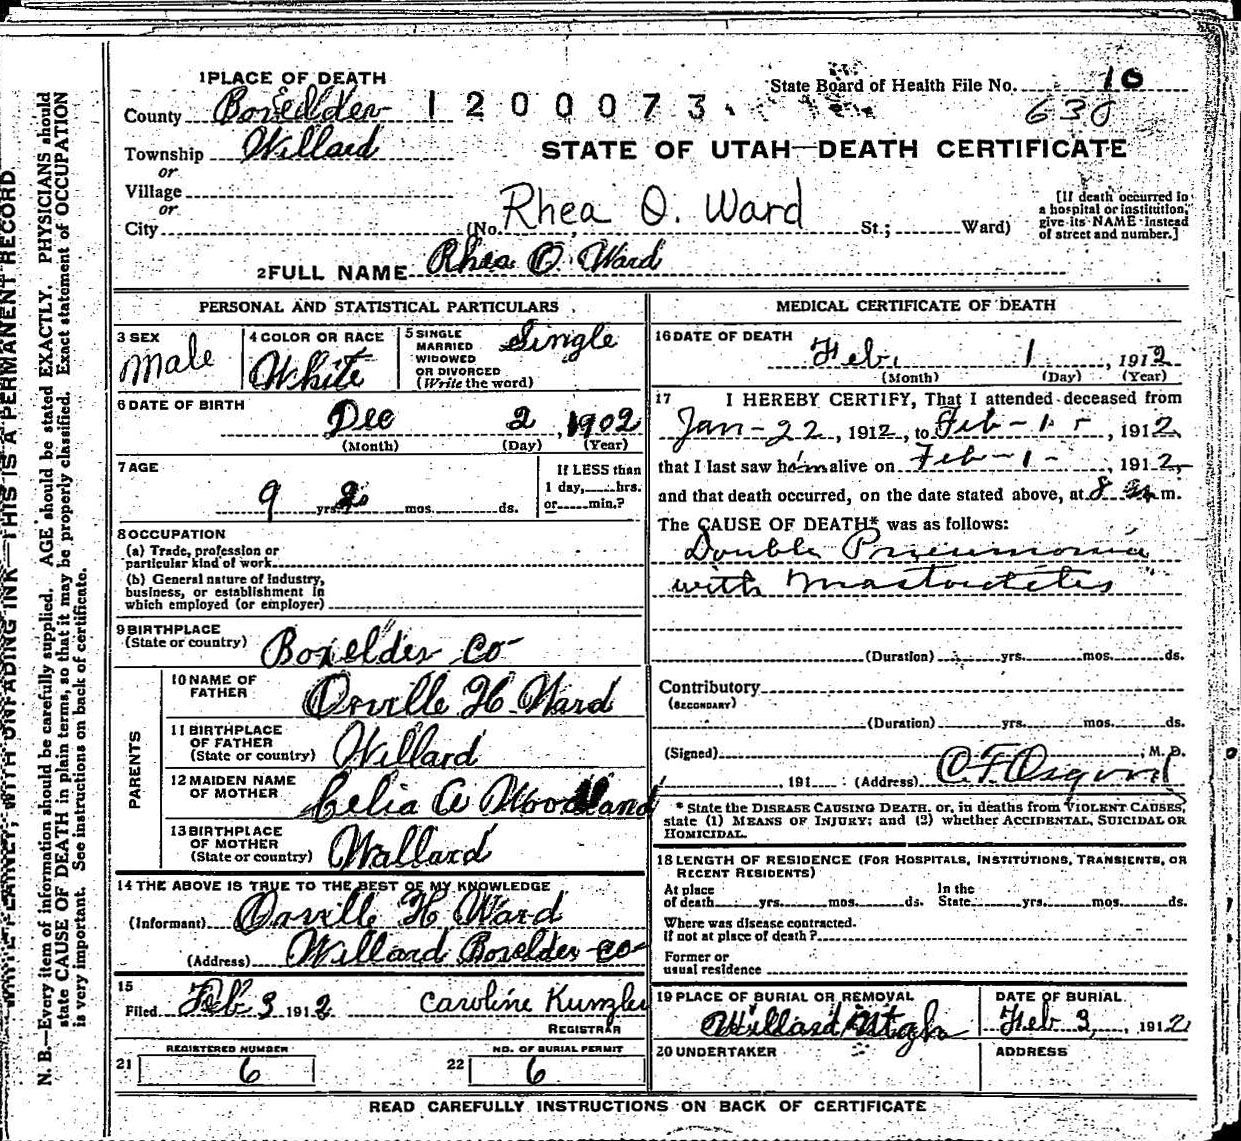 1 PLACE OF DEATH
State Board of Health File No. 10
County Boxelder 1200073 630
Township Willard
STATE OF UTAH—DEATH CERTIFICATE
or
Village
or
City (No. Rhea O. Ward St.; Ward)
[If death occurred in
a hospital or institution,
give its NAME instead
of street and number.]
2 FULL NAME Rhea O. Ward
PERSONAL AND STATISTICAL PARTICULARS
3 SEX
Male
4 COLOR OR RACE
White
5 SINGLE
MARRIED
WIDOWED
OR DIVORCED
(Write the word)
Single
6 DATE OF BIRTH
Dec 2, 1902
(Month) (Day) (Year)
7 AGE
9 yrs. 2 mos. ds.
If LESS than
1 day, hrs.
or min.?
8 OCCUPATION
(a) Trade, profession or
particular kind of work
(b) General nature of industry,
business, or establishment in
which employed (or employer)
9 BIRTHPLACE
(State or country)
Boxelder Co
PARENTS
10 NAME OF
FATHER
Orville H. Ward
11 BIRTHPLACE
OF FATHER
(State or country)
Willard
12 MAIDEN NAME
OF MOTHER
Celia A Woodland
13 BIRTHPLACE
OF MOTHER
(State or country)
Wallard
14 THE ABOVE IS TRUE TO THE BEST OF MY KNOWLEDGE
(Informant) Orville H Ward
(Address) Willard Boxelder Co
15
Filed Feb 3 1912 Caroline Kunzler
REGISTRAR
REGISTERED NUMBER
21 6
NO. OF BURIAL PERMIT
22 6
MEDICAL CERTIFICATE OF DEATH
16 DATE OF DEATH
Feb. 1, 1912
(Month) (Day) (Year)
17 I HEREBY CERTIFY, That I attended deceased from
Jan-22, 1912, to Feb-1-, 1912,
that I last saw him alive on Feb-1-, 1912,
and that death occurred, on the date stated above, at 8 m.
The CAUSE OF DEATH* was as follows:
Double Pneumonia
with Mastoiditis
(Duration) yrs. mos. ds.
Contributory
(SECONDARY)
(Duration) yrs. mos. ds.
(Signed) , M. D.
, 191 (Address) O.F. Osgood
* State the DISEASE CAUSING DEATH, or, in deaths from VIOLENT CAUSES,
state (1) MEANS OF INJURY; and (2) whether ACCIDENTAL, SUICIDAL OR
HOMICIDAL.
18 LENGTH OF RESIDENCE (FOR HOSPITALS, INSTITUTIONS, TRANSIENTS, OR
RECENT RESIDENTS)
At place
of death yrs. mos. ds.
In the
State yrs. mos. ds.
Where was disease contracted.
if not at place of death?
Former or
usual residence
19 PLACE OF BURIAL OR REMOVAL
Willard Utah
DATE OF BURIAL
Feb 3, 1912
20 UNDERTAKER
ADDRESS
READ CAREFULLY INSTRUCTIONS ON BACK OF CERTIFICATE
WRITE PLAINLY, WITH UNFADING INK—THIS IS A PERMANENT RECORD.
N. B.—Every item of information should be carefully supplied. AGE should be stated EXACTLY. PHYSICIANS should
state CAUSE OF DEATH in plain terms, so that it may be properly classified. Exact statement of OCCUPATION
is very important. See instructions on back of certificate.